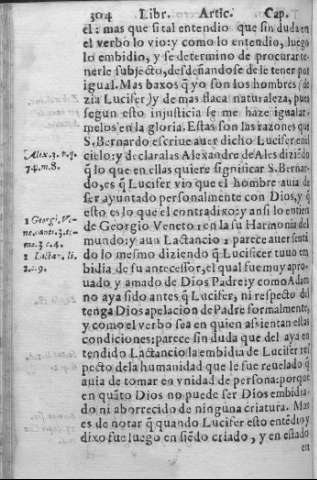 304 Libr. Artic. Cap.
el: mas que si tal entendio que sin duda en
el verbo lo vio: y como lo entendio, luego
lo embidio, y se determino de procurar te-
nerle subjecto, desdeñandose de le tener por
igual. Mas baxos q̃ yo son los hombres (de
zia Lucifer) y de mas flaca naturaleza, pues
segun esto injusticia se me haze igualar-
melos en la gloria. Estas son las razones que
S. Bernardo escriue auer dicho Lucifer en el
cielo: y declaralas Alexandre de Ales diziẽdo
q̃ lo que en ellas quiere significar S. Bernar-
do, es q̃ Lucifer vio que el hombre auia de
ser ayuntado personalmente con Dios, y q̃
esto es lo que el contradixo: y ansi lo entien
de Georgio Veneto 1 en la su Harmonia del
mundo: y aun Lactancio 2 parece auer senti
do lo mesmo diziendo q̃ Lucifer tuuo em
bidia de su antecessor, el qual fue muy apro-
uado y amado de Dios Padre: y como Adam
no aya sido antes q̃ Lucifer, ni respecto del
tenga Dios apelacion de Padre formalmente,
y como el verbo sea en quien assientan estas
condiciones: parece sin duda que del aya en
tendido Lactancio la embidia de Lucifer res
pecto de la humanidad que le fue reuelado q̃
auia de tomar en vnidad de persona: porque
en quãto Dios no puede ser Dios embidia-
do ni aborrecido de ninguna criatura. Mas
es de notar q̃ quando Lucifer esto entẽdio y
dixo fue luego en siẽdo criado, y en estado
en
Alex. 3. p. q.
74. m. 8.
1 Georgi. Ve-
ne. cant. 3. to-
mo. 3 c. 4.
2 Lactan. li.
2. c. 9.